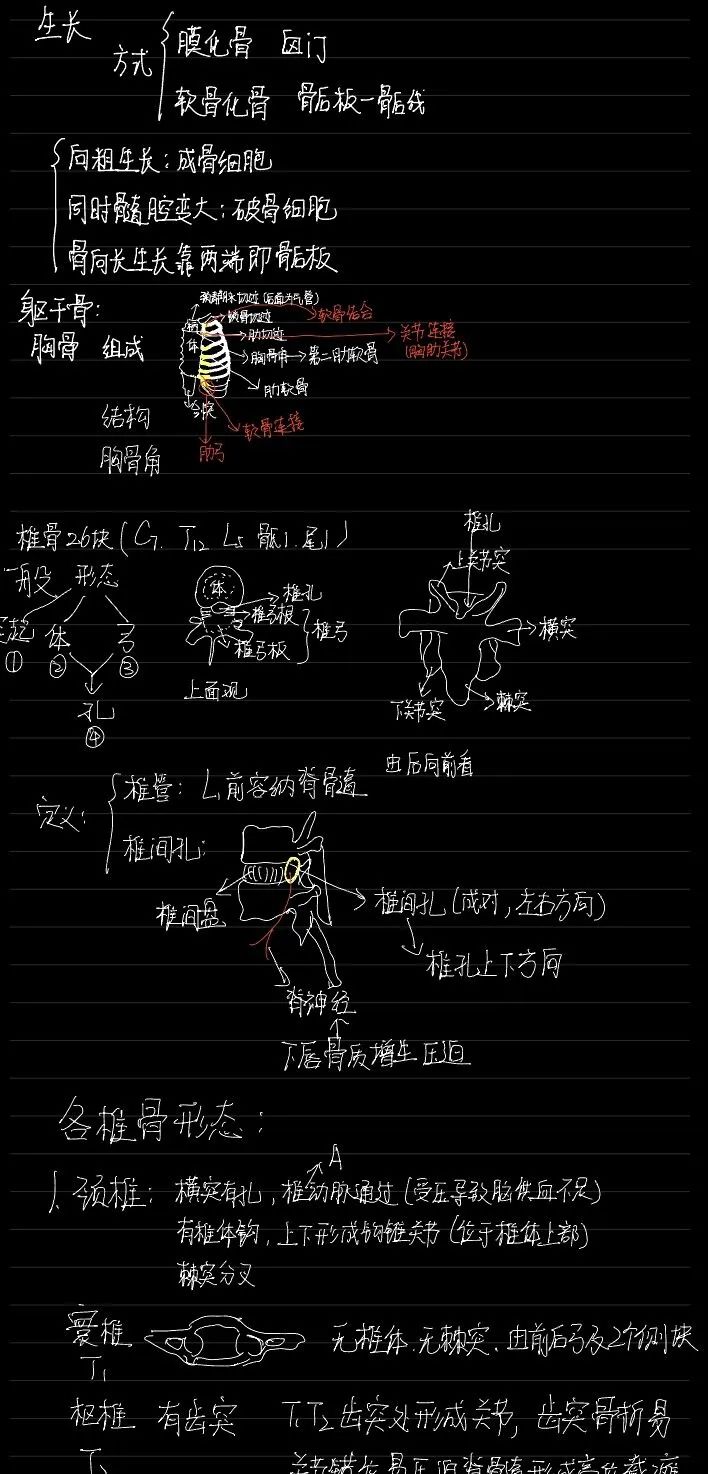 生长
方式
膜化骨 囟门
软骨化骨 骨后板—骨后线
向粗生长：成骨细胞
同时髓腔变大：破骨细胞
骨向长生长靠两端即骨后板
躯干骨：
胸骨 组成
颈静脉切迹(后面为气管)
锁骨切迹
软骨结合
肋切迹
关节连接
(胸肋关节)
体
胸骨角→第二肋软骨
肋软骨
剑突
软骨连接
肋弓
结构
胸骨角
椎骨26块(C7. T12 L5 骶1. 尾1)
一般 形态
突起 体 弓
① ② ③
孔
④
体
椎孔
椎弓根
椎弓板
椎弓
上面观
椎孔
上关节突
横突
下关节突
棘突
由后向前看
定义：
椎管：L1前容纳脊骨髓
椎间孔：
椎间盘
椎间孔(成对，左右方向)
椎孔上下方向
脊神经
下唇骨质增生压迫
各椎骨形态：
1. 颈椎：横突有孔，椎动脉通过(受压导致脑供血不足)
A
有椎体钩，上下形成钩锥关节(位于椎体上部)
棘突分叉
寰椎 无椎体.无棘突.由前后弓及2个侧块
T1
枢椎 有齿突 T1T2齿突处形成关节，齿突骨折易